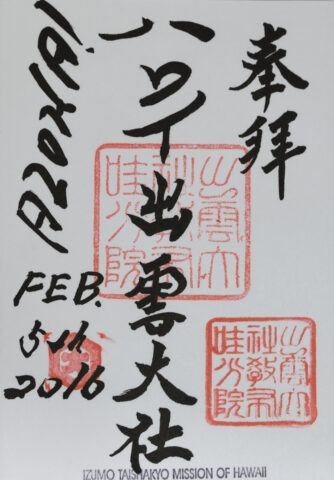 奉拝
ハワイ出雲大社
ALOHA!
FEB.
5th
2016
出雲大
社教布
哇分院
出雲大
社教布
哇分院
IZUMO TAISHAKYO MISSION OF HAWAII